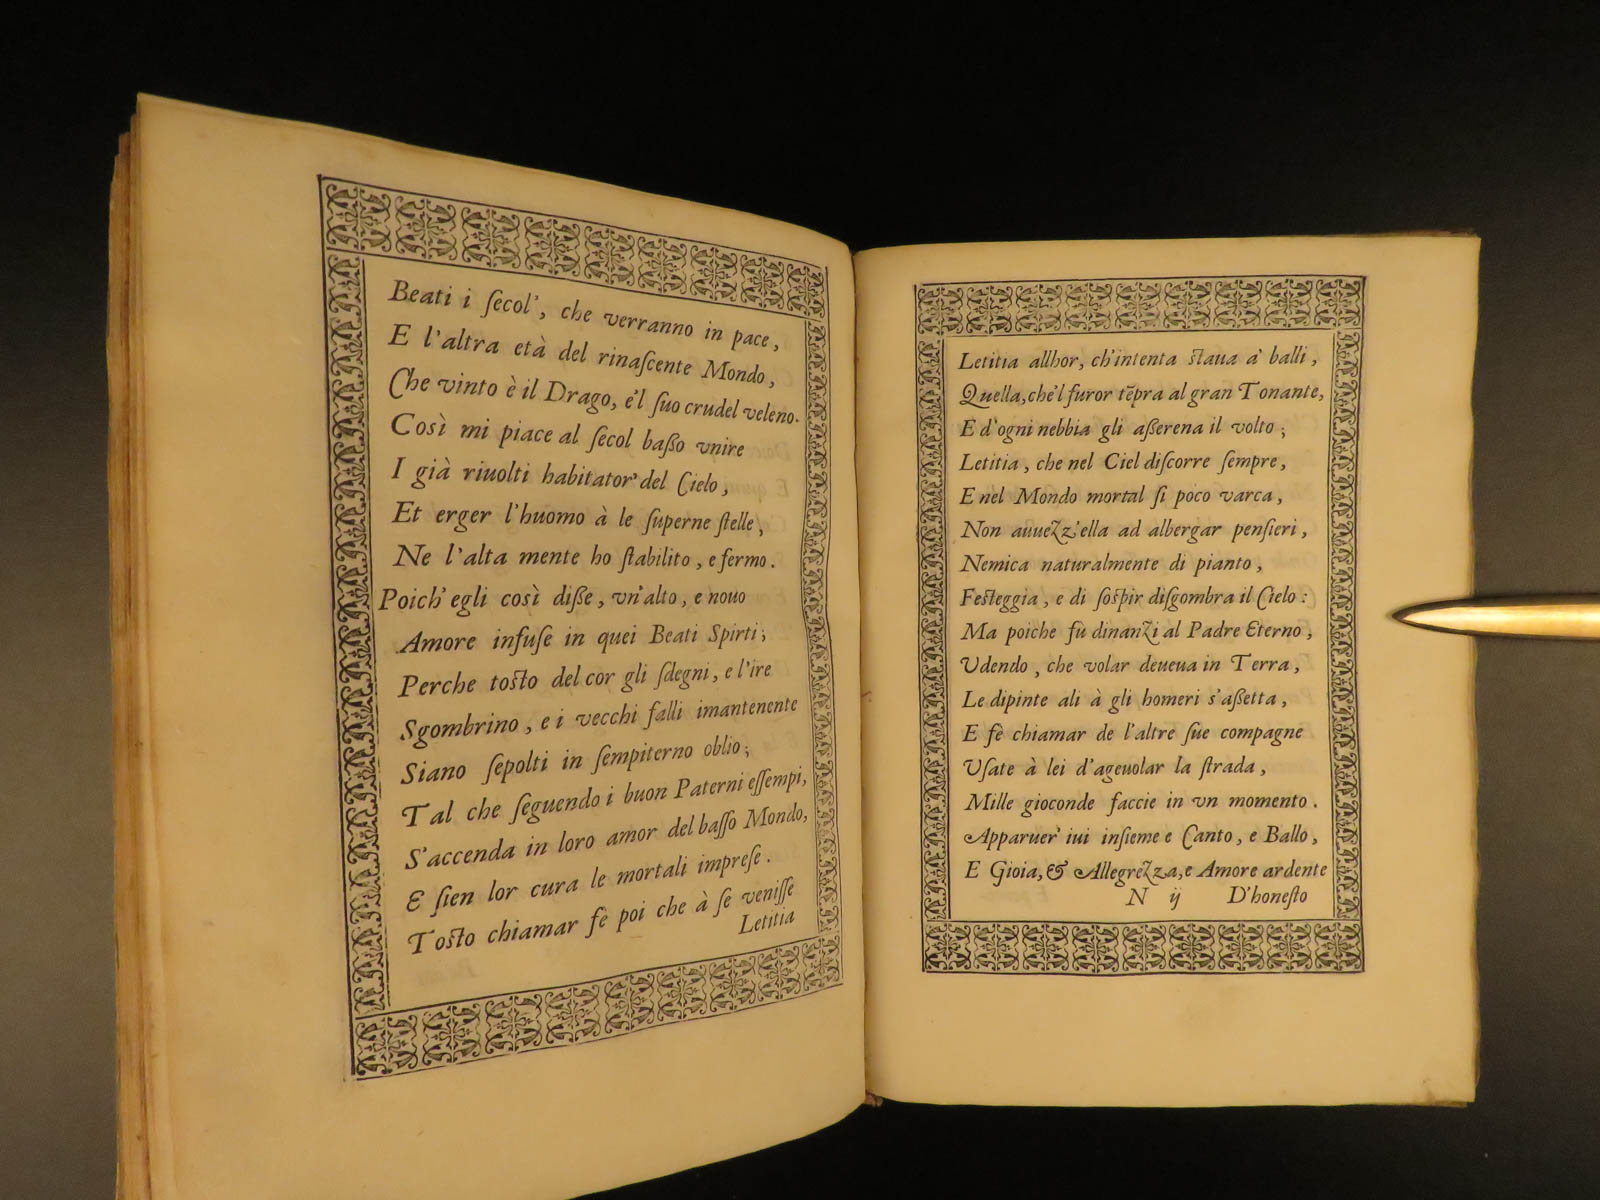 Beati i ſecol', che verranno in pace,
E l'altra età del rinaſcente Mondo,
Che vinto è il Drago, e'l ſuo crudel veleno.
Così mi piace al ſecol baſſo vnire
I già riuolti habitator' del Cielo,
Et erger l'huomo à le ſuperne ſtelle,
Ne l'alta mente ho ſtabilito, e fermo.
Poich' egli così diſſe, vn'alto, e nouo
Amore infuſe in quei Beati Spirti;
Perche toſto del cor gli ſdegni, e l'ire
Sgombrino, e i vecchi falli imantenente
Siano ſepolti in ſempiterno oblio;
Tal che ſeguendo i buon Paterni eſſempi,
S'accenda in loro amor del baſſo Mondo,
E ſien lor cura le mortali impreſe.
Toſto chiamar fè poi che à ſe veniſſe
Letitia
Letitia allhor, ch'intenta ſtaua à balli,
Quella, che'l furor tẽpra al gran Tonante,
E d'ogni nebbia gli aſſerena il volto;
Letitia, che nel Ciel diſcorre ſempre,
E nel Mondo mortal ſi poco varca,
Non auuezz'ella ad albergar penſieri,
Nemica naturalmente di pianto,
Feſteggia, e di ſoſpir diſgombra il Cielo:
Ma poiche fù dinanzi al Padre Eterno,
Udendo, che volar deueua in Terra,
Le dipinte ali à gli homeri s'aſſetta,
E fè chiamar de l'altre ſue compagne
Vſate à lei d'ageuolar la ſtrada,
Mille gioconde faccie in vn momento.
Apparuer' iui inſieme e Canto, e Ballo,
E Gioia, & Allegrezza, e Amore ardente
N ij D'honeſto